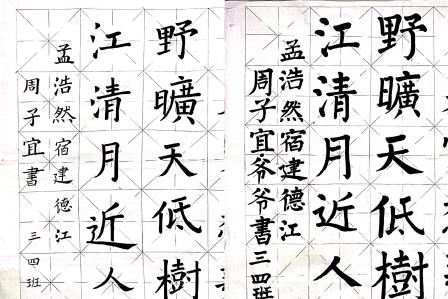 野曠天低樹
江清月近人
孟浩然宿建德江
周子宜書 三四班
野曠天低樹
江清月近人
孟浩然宿建德江
周子宜爷爷書三四班